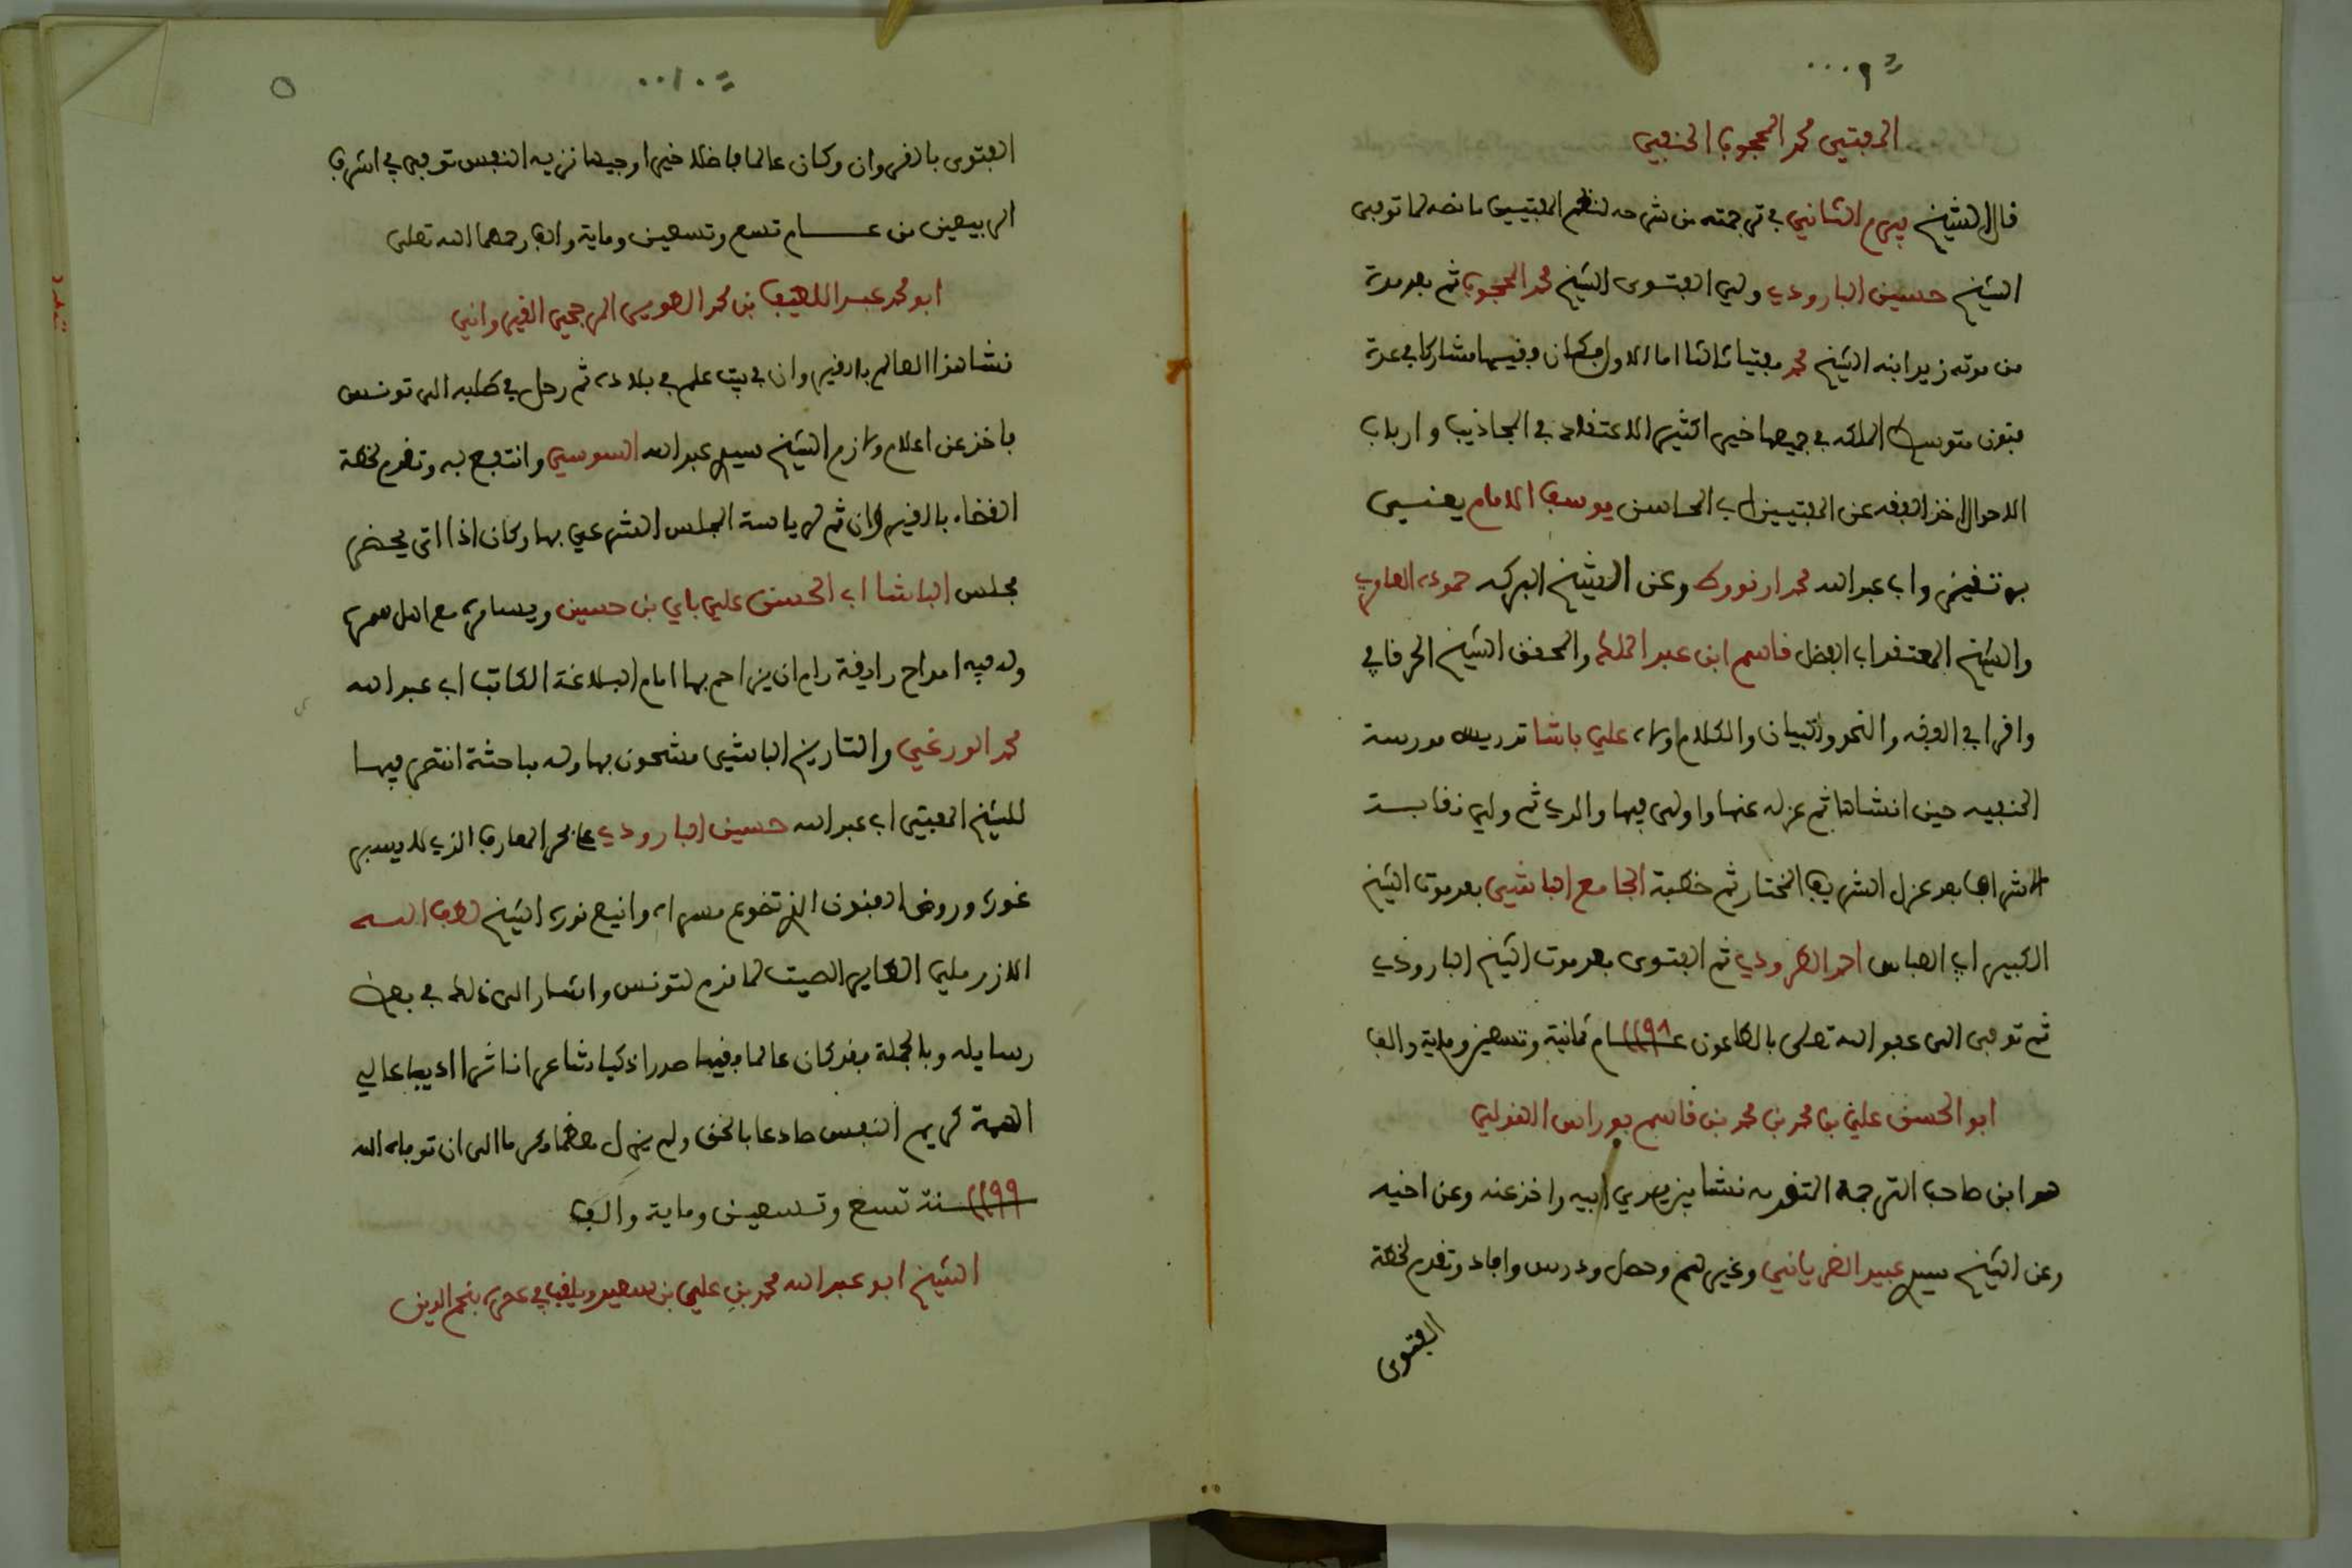 ٩...
المفتي محمد المحجوب الحنفي
قال الشيخ بيرم الثاني في ترجمته من شرحه لنظم المفتيين ما نصه لما توفى
الشيخ حسين البارودي ولي الفتوى الشيخ محمد المحجوب ثم بعد مدة
من موته زيد ابنه الشيخ محمد مفتيا ثالثا اما الاول فكان فقيها مشاركا في عدة
فنون متوسط الملكة في جميعها خيرا كثير الاعتقاد في المجاذيب وارباب
الاحوال اخذ الفقه عن المفتيين اب المحاسن يوسف الامام يعنسي
برتقيز واب عبد الله محمد ارنووط وعن الشيخ البركه حموده
والشيخ المعتقد اب الفضل قاسم ابن عبد الملك والمحقق الشيخ الحرقافي
واقرا في الفقه والنحو والبيان والكلام اولاه علي باشا تدريس مدرسة
الحنفيه حين انشاها ثم عزله عنها واولى فيها والدي ثم ولي نقابـة
الاشراف بعد عزل الشريف المختار ثم خطبة الجامع الباشي بعد موت الشيخ
الكبير اب العباس احمد الطرودي ثم الفتوى بعد موت الشيخ البارودي
ثم توفى الى عفو الله تعلى بالطاعون عام ١١٩٨ ثمانية وتسعين وماية والف
ابو الحسن علي بن محمد بن محمد بن قاسم بوراس الغولي
هو ابن صاحب الترجمة التقدمه نشا بين يدي ابيه واخذ عنه وعن اخيه
وعن الشيخ سيدي عبيد الغرياني وغيرهم وحصل ودرس وافاد وتقدم لخطة
الفتوى
..١٠
٥
الفتوى بالقروان وكان عالما فاضلا خيرا وجيها نزيه النفس توفي في اشرف
الربيعين من عـــام تسع وتسعين وماية والف رحمهما الله تعلى
ابو محمد عبد اللطيف بن محمد الطوير المرجحي القيرواني
نشا هذا العالم بالقيروان في بيت علم في بلاده ثم رحل في طلبه الى تونس
فاخذ عن اعلام ولازم الشيخ سيدي عبد الله السوسي وانتفع به وتقدم لخطة
القضاء بالقيروان ثم لرياسة المجلس الشرعي بها وكان اذا اتى يحضر
مجلس الباشا اب الحسن علي باي بن حسين ويسامره مع اهل سمره
وله فيه امداح رايقة رام ان يزاحم بها امام البلاغة الكاتب اب عبد الله
محمد الورغي والتاريخ الباشي مشحون بها وله مباحثة انتصر فيها
للشيخ المفتي اب عبد الله حسين البارودي على بحر المعارف الذي لا يسبر
غوره وروض الفنون الذي تضوع مسراه وانيع نوره الشيخ لطف الله
الازرملي الطاير الصيت لما قدم لتونس واشار الى ذلك في بعض
رسايله وبالجملة فقد كان عالما فقيها صدرا ذكيا شاعرا ناثرا اديبا عالي
الهمة كريم النفس صادعا بالحق ولم يزل معظما مكرما الى ان توفاه الله
١١٩٩ سنة تسع وتسعين وماية والف
الشيخ ابو عبد الله محمد بن علي بن سعيد ويلقب في عصره بنجم الدين